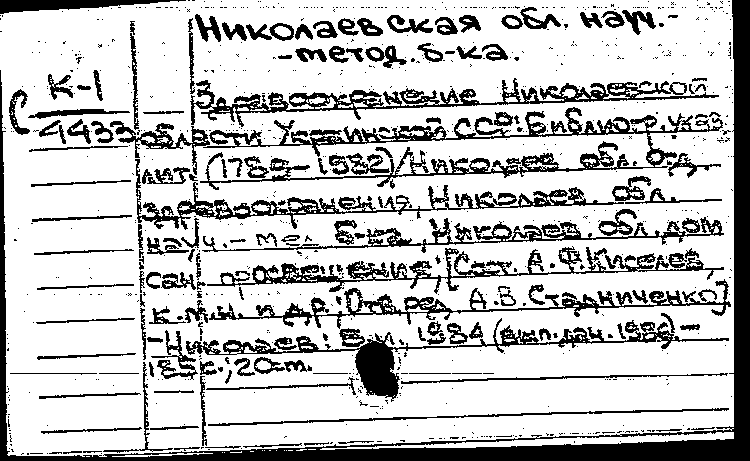 Николаевская обл. науч.-
-метод. б-ка.
К-1
4433
Здравоохранение Николаевской
области Украинской ССР: Библиогр. указ.
лит. (1789-1982)/Николаев. обл. отд.
здравоохранения, Николаев. обл.
науч.-мед. б-ка, Николаев. обл. дом
сан. просвещения; [Сост. А.Ф.Киселев,
к.м.н. и др.; Отв.ред. А.В.Стадниченко].
-Николаев: Б.и., 1984 (вып.дан. 1986).-
185с.; 20см.